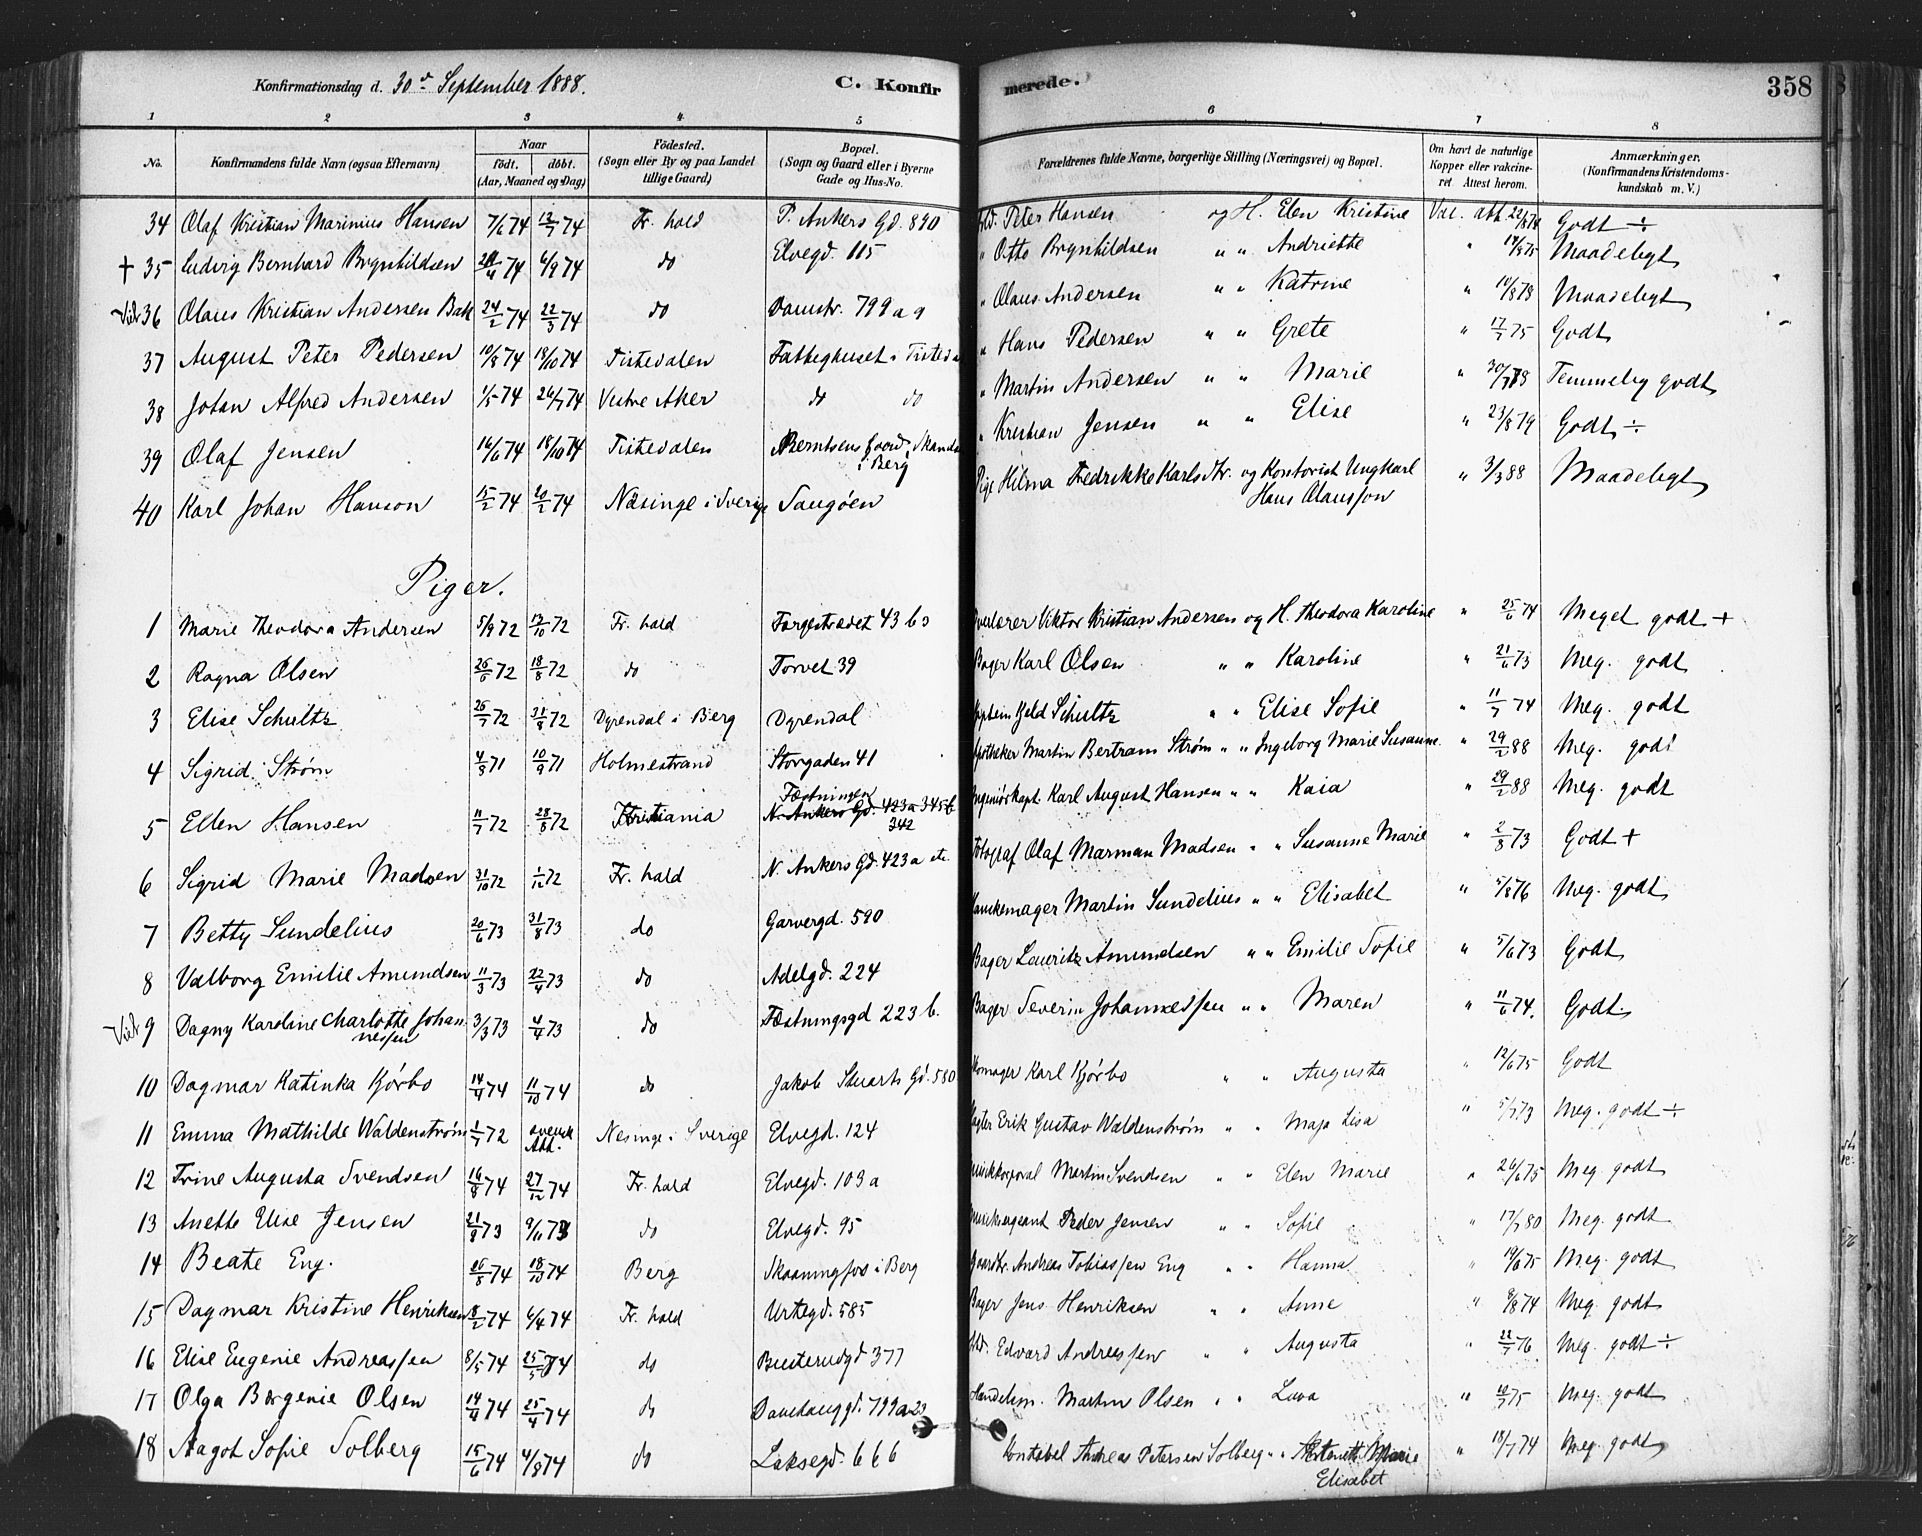 Konfirmationsdag d. 30te September 1888. C. Konfirmerede. 358
1 2 3 4 5 6 7 8
No. Konfirmandens fulde Navn (ogsaa Efternavn) Naar født. døbt. (Aar, Maaned og Dag) Fødested. (Sogn eller By og paa Landet tillige Gaard) Bopæl. (Sogn og Gaard eller i Byerne Gade og Hus-No. Forældrenes fulde Navne, borgerlige Stilling (Næringsvei) og Bopæl. Om havt de naturlige Kopper eller vakcineret. Attest herom. Anmærkninger. (Konfirmandens Kristendomskundskab m. V.)
34 Olaf Kristian Marinius Hansen 7/6 74 12/7 74 Fr. hald P. Ankers Gd. 890 Peter Hansen og H. Elen Kristine Vac. att. 22/8 74 Godt ÷
+ 35 Ludvig Bernhard Brynhildsen 74 6/9 74 do Elvegd. 115 " Otto Brynhildsen " " Andriette " 14/9 75 Maadeligt
36 Olaus Kristian Andersen Bak 24/2 74 22/3 74 do Damstr. 799 a 9 " Olaus Andersen " " Katrine " 10/8 78 Maadeligt
37 August Peter Pedersen 10/8 74 18/10 74 Tistedalen Fattighuset i Tisteda " Hans Pedersen " " Grete " 17/7 75 Godt
38 Johan Alfred Andersen 1/5 74 26/7 74 Vestre Aker do do " Martin Andersen " " Marie " Temmelig godt
39 Olaf Jensen 16/6 74 18/10 74 Tistedalen Berntsens Gaard i Berg " Kristian Jensen " " Elise " 23/8 79 Godt ÷
40 Karl Johan Hanson 15/2 74 20/2 74 Næsinge i Sverige Saugøen Pige Hilma Fredrikke Karlsdtr. og Kontorist Ungkarl Hans Olausson " 3/3 88 Maadeligt
Piger.
1 Marie Theodora Andersen 5/9 72 13/10 72 Fr. hald Torgstrædet 43 b Viktor Kristian Andersen og H. Theodora Karoline " 25/6 74 Meget godt +
2 Ragna Olsen 26/6 72 18/8 72 do Torvet 39 Bager Karl Olsen " " Karoline " 21/6 73 Meg. godt
3 Elise Schultz 26/7 72 31/8 72 Dyrendal i Berg Dyrendal Schultz " " Elise Sofie " 11/7 74 Meg. godt
4 Sigrid Strøm 4/8 71 10/9 71 Holmestrand Storgaden 41 Apotheker Martin Bertram Strøm " " Ingeborg Marie Susanne " 29/2 88 Meg. godt
5 Ellen Hansen 11/7 72 28/8 72 Kristiania Fæstningen N. Ankers Gd. 423 a 345 b 342 Ingeniørkapt. Karl August Hansen " " Kaia " 29/2 88 Meg. godt
6 Sigrid Marie Madsen 31/10 72 1/12 72 Fr. hald N. Ankers Gd. 423 a Fotograf Olaf Marman Madsen " " Susanne Marie " 2/8 73 Godt +
7 Betty Sundelius 20/6 73 31/8 73 do Garvergd. 590 Martin Sundelius " " Elisabet " 5/8 76 Meg. godt
8 Valborg Emilie Amundsen 11/3 73 22/4 73 do Adelgd. 224 Bager Lauritz Amundsen " " Emilie Sofie " 5/6 73 Godt
9 Dagny Karoline Charlotte Johannessen 3/3 73 4/4 73 do Fæstningsgd 223 b. Bager Severin Johannessen " " Maren " 11/6 74. Godt.
10 Dagmar Katinka Kjørbo 14/4 74 11/10 74 do Jakob Stuarts Gd. 580 Skomager Karl Kjørbo " " Augusta " 12/6 75 Godt
11 Emma Mathilde Waldenstrøm 1/7 72 svensk Att. Nesinge i Sverige Elvegd. 124 Erik Gustav Waldenstrøm " " Maja Lisa " 5/7 73 Meg. godt ÷
12 Trine Augusta Svendsen 16/8 74 27/12 74 Fr. hald Elvegd. 103 a Martin Svendsen " " Elen Marie " 26/6 75 Meg. godt
13 Anette Elise Jensen 21/9 73 9/11 73 do Elvegd. 95 Peder Jensen " " Sofie " 17/7 80 Meg. godt
14 Beate Eng. 26/8 74 18/10 74 Berg Skaaningfos i Berg Andreas Tobiassen Eng " " Hanna " 19/6 75 Meg. godt
15 Dagmar Kristine Henriksen 8/2 74 6/4 74 Fr. hald Urtegd. 585 Bager Jens Henriksen " " Anne " 8/8 74 Meg. godt
16 Elise Eugenie Andreassen 8/5 74 25/5 74 do Busterudgd 377 Edvard Andreassen " " Augusta " 22/7 76 Meg. godt ÷
17 Olga Børgenie Olsen 14/4 74 25/4 74 do Handelsm. Martin Olsen " " Lava " Meg. godt
18 Aagot Sofie Solberg 15/6 74 4/8 74 do Laksegd. 666 Konstabel Andreas Petersen Solberg " " Antonette Marie Elisabet " 18/7 74 Meg. godt